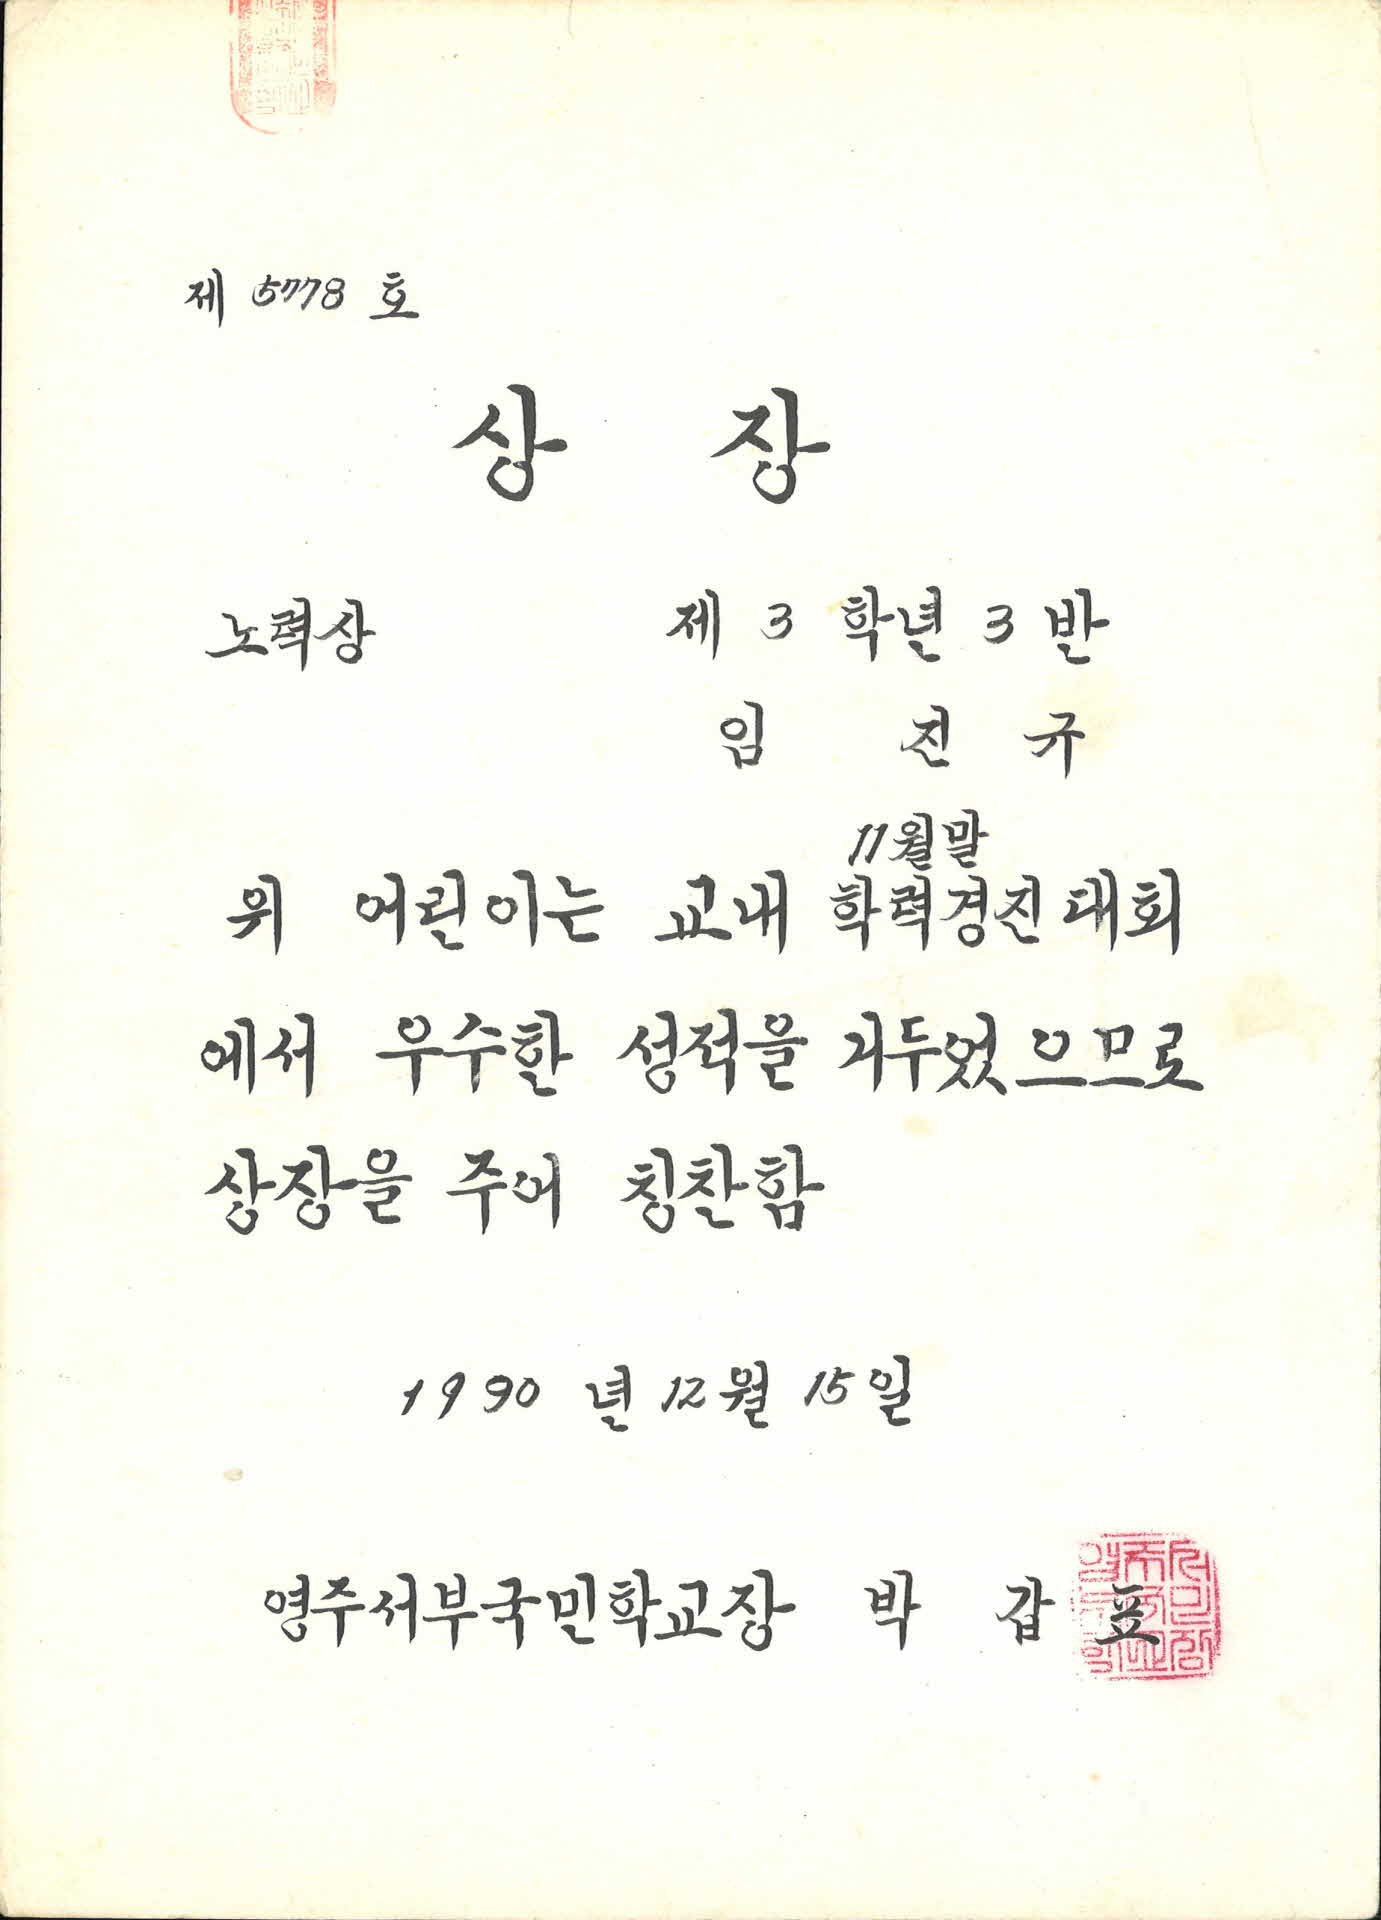 제 5778 호
상 장
노력상
제 3 학년 3 반
임 진 규
11월말
위 어린이는 교내 학력경진대회
에서 우수한 성적을 거두었으므로
상장을 주어 칭찬함
1990 년 12월 15일
영주서부국민학교장 박 갑 표